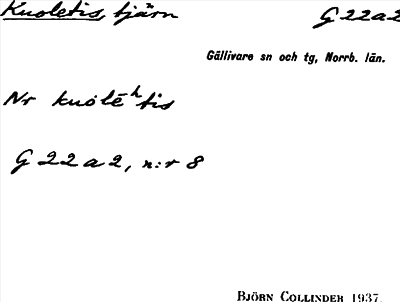 Kuoletis, tjärn G 22 a 2
Gällivare sn och tg, Norrb. län.
Nr kuólēʰtis
G 22 a 2, n:r 8
BJÖRN COLLINDER 1937.